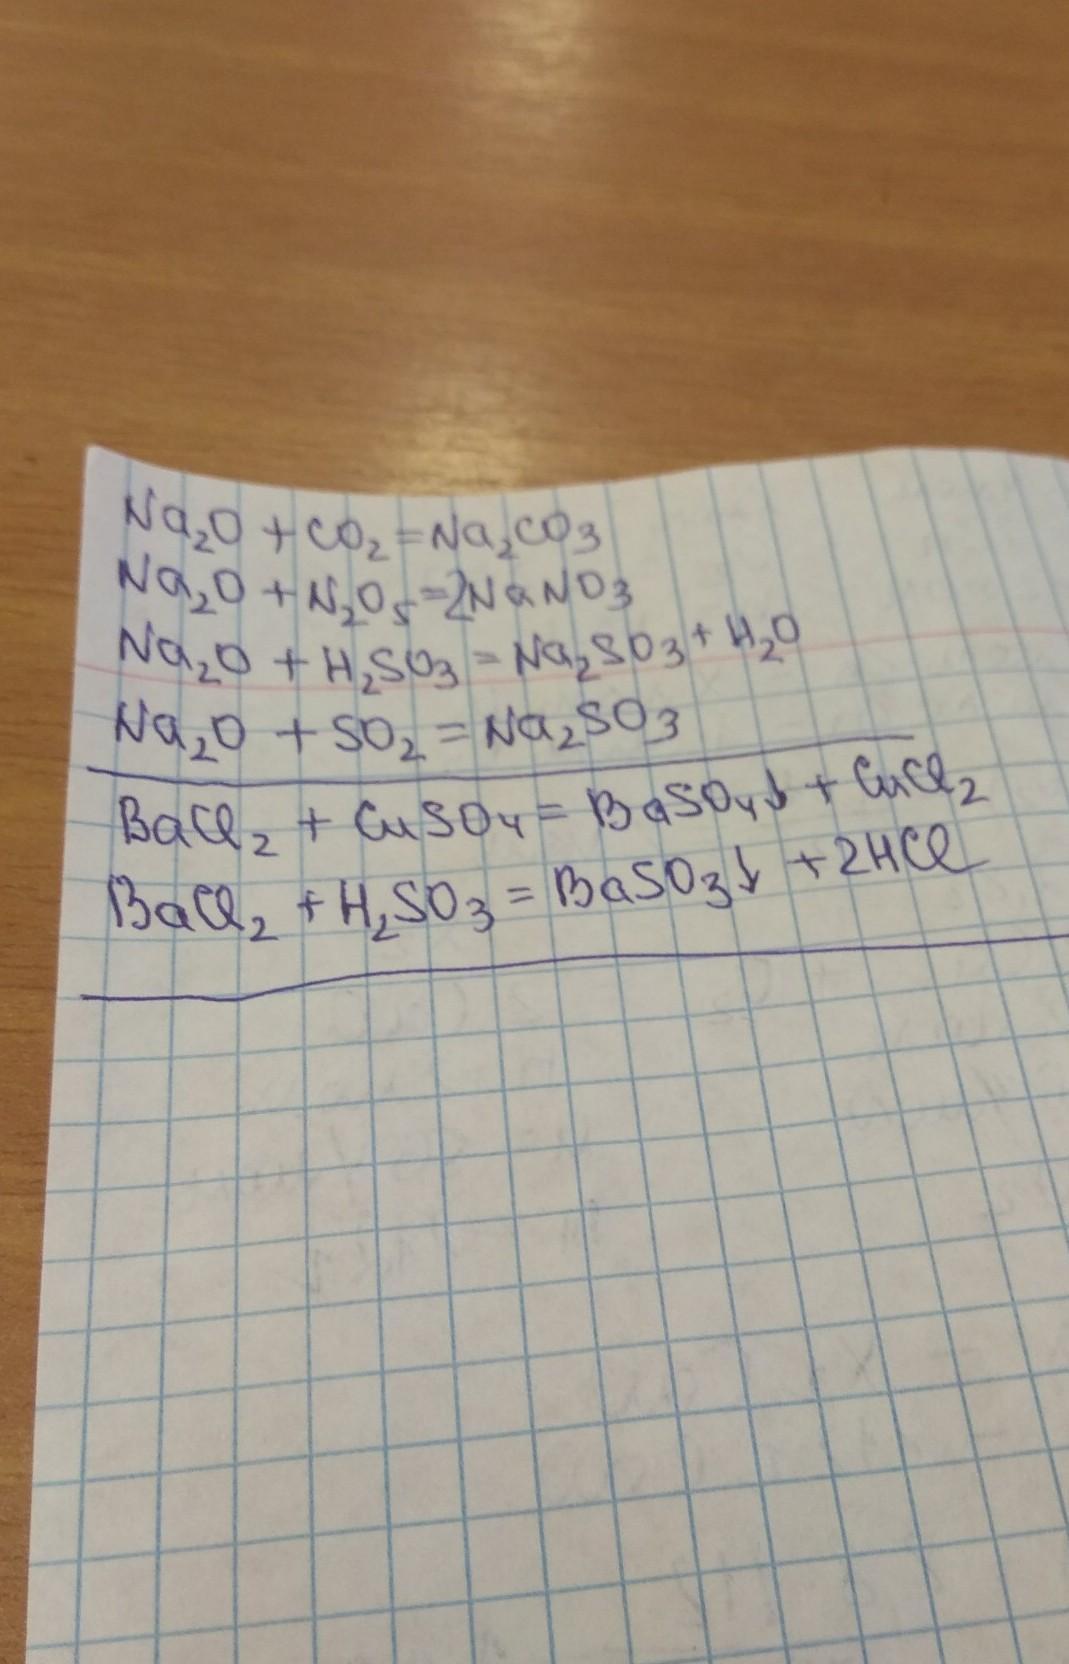 Na₂O + CO₂ = Na₂CO₃
Na₂O + N₂O₅ = 2NaNO₃
Na₂O + H₂SO₃ = Na₂SO₃ + H₂O
Na₂O + SO₂ = Na₂SO₃
BaCl₂ + CuSO₄ = BaSO₄↓ + CuCl₂
BaCl₂ + H₂SO₃ = BaSO₃↓ + 2HCl